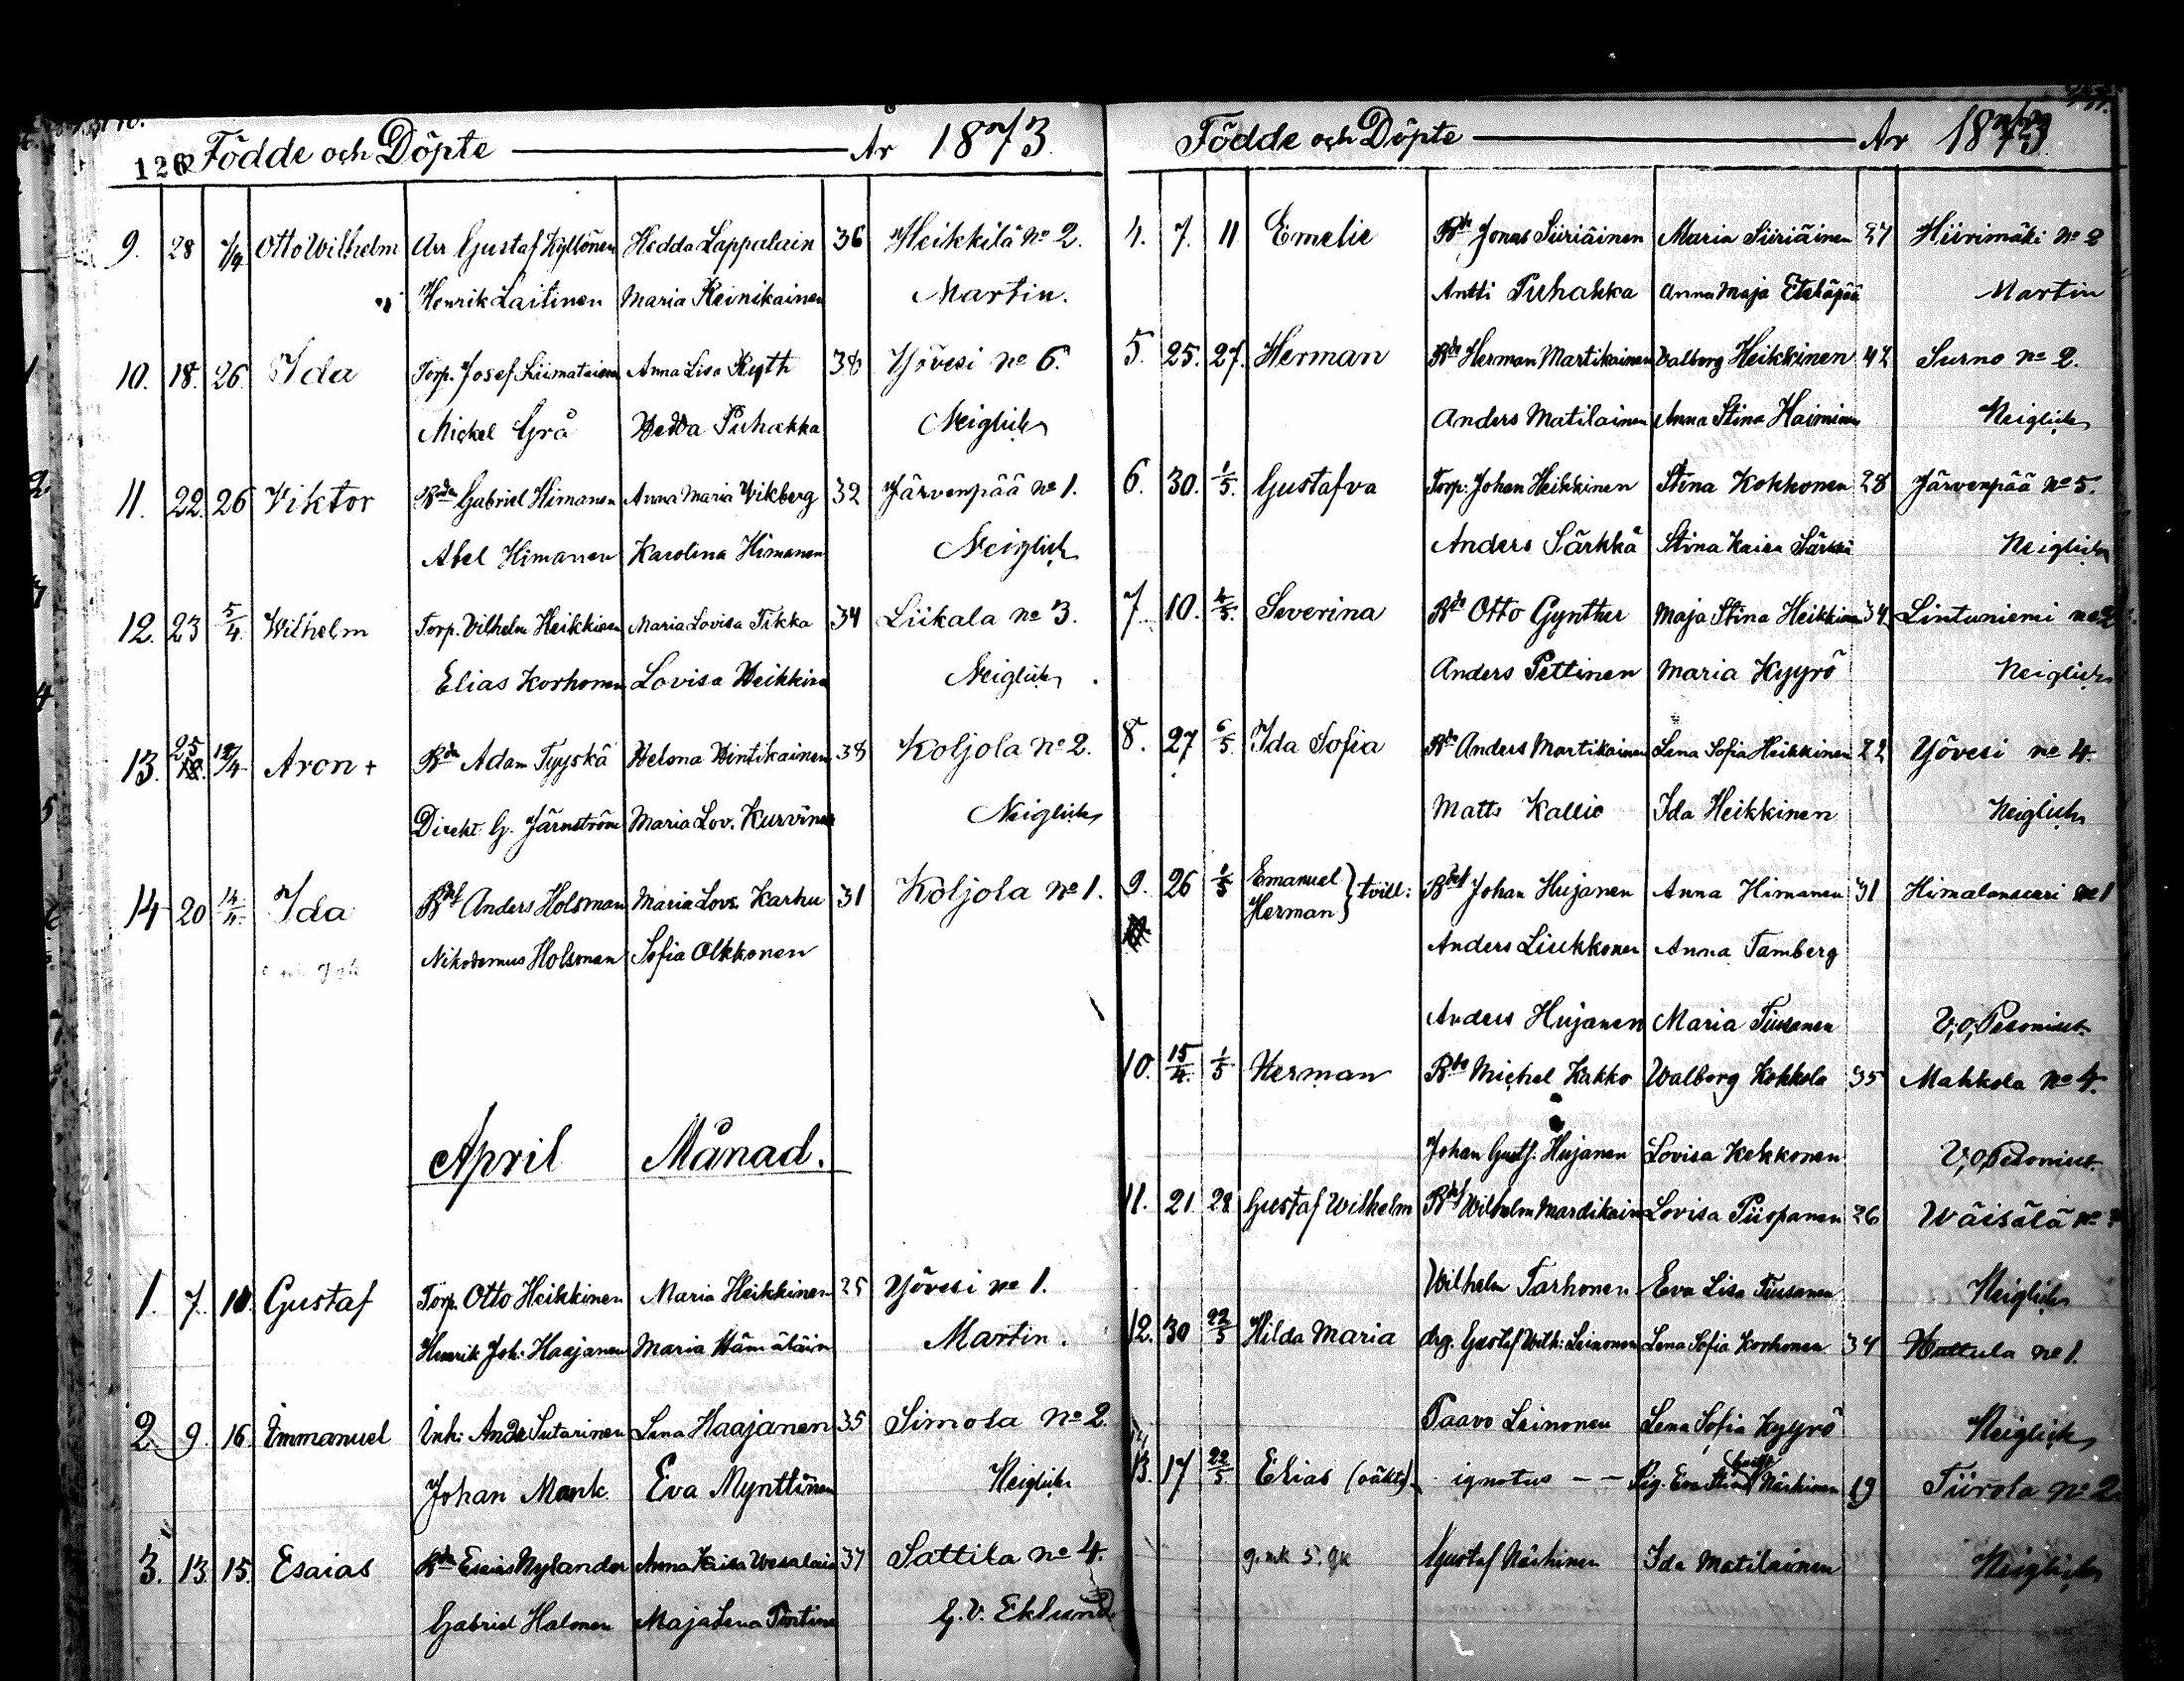 126 Födde och Döpte — År 1873.
9. 28 7/4 Otto Wilhelm Arr Gustaf Kyllönen Hedda Lappalain 36 Heikkilä No 2.
Henrik Laitinen Maria Reinikainen Martin.
10. 18. 26. Ida Torp. Josef Liimatainen Anna Lisa Ryth 38 Yövesi No 6.
Mickel Grå Hedda Puhakka Neiglick
11. 22. 26 Viktor Bde Gabriel Himanen Anna Maria Vikberg 32 Järvenpää No 1.
Abel Himanen Karolina Himanen Neiglick
12. 23 5/4. Wilhelm Torp. Vilhelm Heikkinen Maria Lovisa Tikka 34 Liikala No 3.
Elias Korhonen Lovisa Heikkinen Neiglick
13. 25 /4 Aron + Bde Adam Tyyskä Helena Hintikainen 38 Koljola No 2.
Direkt. G. Järnström Maria Lov. Kurvinen Neiglick
14 20 14/4. Ida Anders Holsman Maria Lovs. Karhu 31 Koljola No 1.
Nikodemus Holsman Sofia Olkkonen
April Månad.
1. 7. 10. Gustaf Torp. Otto Heikkinen Maria Heikkinen 25 Yövesi No 1.
Henrik Joh. Haajanen Maria Hämäläin Martin.
2. 9. 16. Emmanuel Inh: And. Sutarinen Lena Haajanen 35 Simola No 2.
Johan Mank. Eva Mynttinen Neiglick
3. 13. 15. Esaias Bde Esaias Nylander Anna Kaisa Vesalain 37 Sattila No 4.
Gabriel Halonen Maja Lena G. V. Eklund
Födde och Döpte — År 1873
4. 7. 11 Emelie Bde Jonas Siiriäinen Maria Siiriäinen 27 Hiirimäki No 2
Antti Puhakka Anna Maja Eteläpää Martin
5. 25. 27. Herman Bde Herman Martikainen Valborg Heikkinen 42 Surno No 2.
Anders Matilainen Anna Stina Haiminen Neiglick
6. 30. 1/5. Gustafva Torp: Johan Heikkinen Stina Kokkonen 28 Järvenpää No 5.
Anders Särkkä Stina Kaisa Särkkä Neiglick
7. 10. 4/5. Severina Bde Otto Gynther Maja Stina Heikkinen 34. Lintuniemi No 2
Anders Pettinen Maria Kyyrö Neiglick
8. 27 6/5. Ida Sofia Bde Anders Martikainen Lena Sofia Heikkinen 22 Yövesi No 4.
Matts Kallio Ida Heikkinen Neiglick
9. 26 1/5 Emanuel Herman } tvill: Johan Hujanen Anna Himanen 31 Himalansaari No 1
Anders Liukkonen Anna Tamberg
Anders Hujanen Maria Tiusanen V. o. Pesonius
10. 15/4. 1/5 Herman Bde Michel Kakko Walborg Kokkola 35 Mahkola No 4.
Johan Gustf. Hujanen Lovisa Kekkonen V. o. Pesonius
11. 21. 28 Gustaf Wilhelm Wilhelm Mardikain Lovisa Piispanen 26 Wäisälä No
Wilhelm Tarhonen Eva Lisa Tiusanen Neiglick
12. 30 22/5 Hilda Maria drg. Gustaf Wilh: Leinonen Lena Sofia Korhonen 34 Hattula No 1.
Paavo Leinonen Lena Sofia Kyyrö Neiglick
13. 17 22/5 Elias (oäkta). ignotus — — Pig. Eva Stina Närhinen 19 Tiirola No 2.
Gustaf Närhinen Ida Matilainen Neiglick